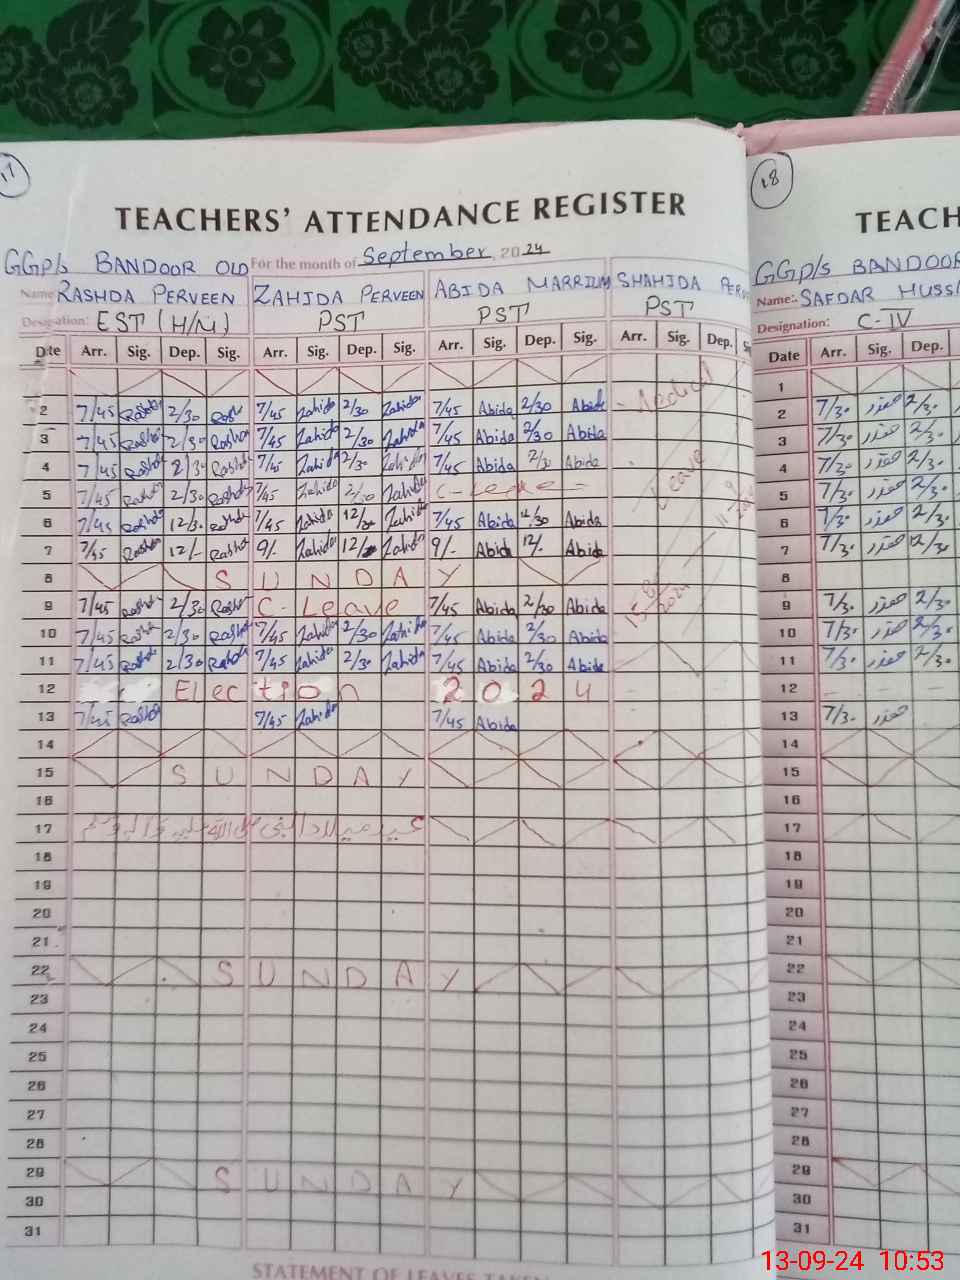 17
TEACHERS' ATTENDANCE REGISTER
GGP/s BANDOOR OLD For the month of September 2024
Name RASHDA PERVEEN ZAHIDA PERVEEN ABIDA MARRIUM SHAHIDA PERV
Designation: EST (H/M) PST PST PST
Date Arr. Sig. Dep. Sig. Arr. Sig. Dep. Sig. Arr. Sig. Dep. Sig. Arr. Sig. Dep.
1
2 7/45 Rashda 2/30 Rash 7/45 Zahida 2/30 Zahida 7/45 Abida 2/30 Abida - Medical
3 7/45 Rashda 2/30 Rashda 7/45 Zahida 2/30 Zahida 7/45 Abida 2/30 Abida
4 7/45 Rashda 2/30 Rashda 7/45 Zahida 2/30 Zahida 7/45 Abida 2/30 Abida Leave
5 7/45 Rashda 2/30 Rashda 7/45 Zahida 2/30 Zahida C-Leave
6 7/45 Rashda 12/30 Rashda 7/45 Zahida 12/30 Zahida 7/45 Abida 12/30 Abida
7 7/45 Rashda 12/- Rashda 9/- Zahida 12/- Zahida 9/- Abida 12/- Abida
8 SUNDAY
9 7/45 Rashda 2/30 Rashda C-Leave 7/45 Abida 2/30 Abida
10 7/45 Rashda 2/30 Rashda 7/45 Zahida 2/30 Zahida 7/45 Abida 2/30 Abida
11 7/45 Rashda 2/30 Rashda 7/45 Zahida 2/30 Zahida 7/45 Abida 2/30 Abida
12 Election 2024
13 7/45 Rashda 7/45 Zahida 7/45 Abida
14
15 SUNDAY
16
17 عید میلاد النبی صلی اللہ علیہ وآلہ وسلم
18
19
20
21
22 SUNDAY
23
24
25
26
27
28
29 SUNDAY
30
31
STATEMENT OF LEAVES TAKEN
18
TEACH
GGP/s BANDOOR
Name: SAFDAR HUSS
Designation: C-IV
Date Arr. Sig. Dep.
1
2 7/30 صفدر 2/30
3 7/30 صفدر 2/30
4 7/30 صفدر 2/30
5 7/30 صفدر 2/30
6 7/30 صفدر 2/30
7 7/30 صفدر 12/30
8
9 7/30 صفدر 2/30
10 7/30 صفدر 2/30
11 7/30 صفدر 2/30
12 - - -
13 7/30 صفدر
14
15
16
17
18
19
20
21
22
23
24
25
26
27
28
29
30
31
13-09-24 10:53